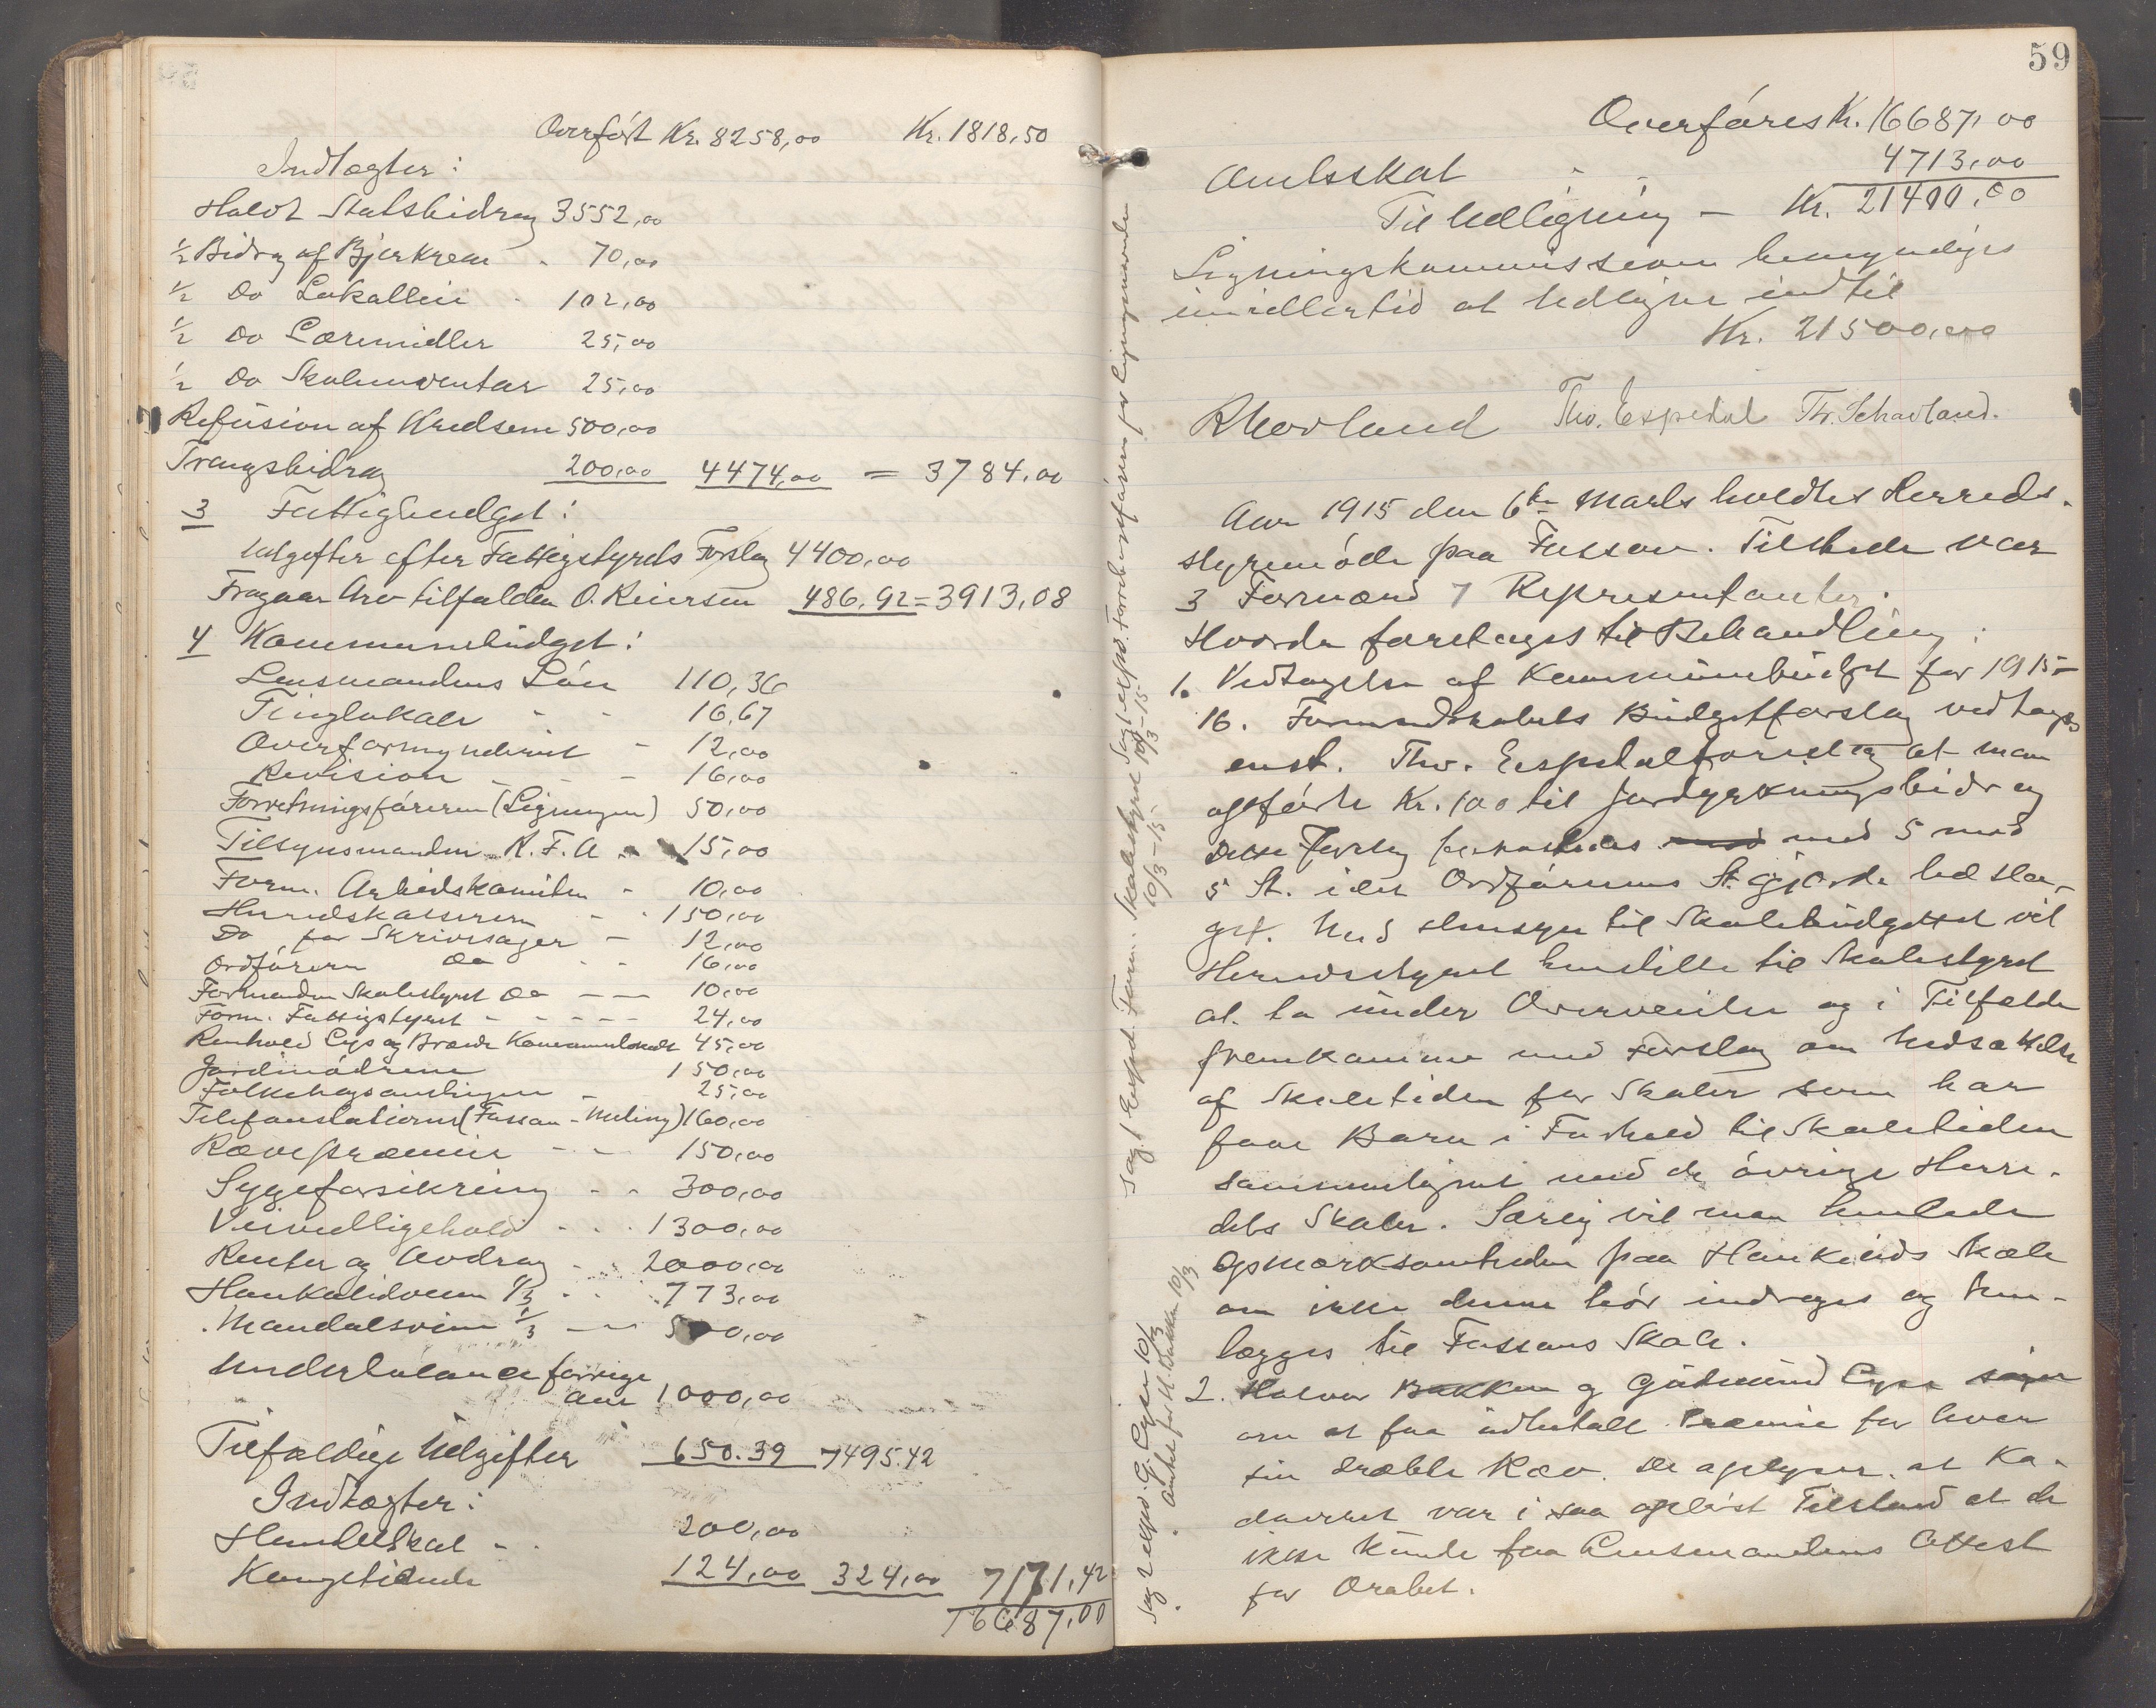 Overført Kr. 8258,00 Kr. 1818,50
Indtægter:
Halvt Statsbidrag 3552,00
1/2 Bidrag af Bjerkrem - 70,00
1/2 Do Lokalleie - 102,00
1/2 Do Læremidler 25,00
1/2 Do Skoleinventar 25,00
Refusion af Kredsene 500,00
Trangsbidrag 200,00 4474,00 = 3784,00
3 Fattigbudget:
Utgifter efter Fattigstyrets Forslag 4400,00
Fragaar Arv tilfalden O. Reiersen 486,92 = 3913,08
4 Kommunebudget:
Lensmandens Løn 110,36
Tinglokale - - 16,67
Overformynderiet - 12,00
Revision - - - 16,00
Forretningsføreren (Ligningen) 50,00
Tilsynsmanden K.F.A - 15,00
Form. Arbeidskomiteen - 10,00
Herredskassereren - - 150,00
Do for Skrivesager - 12,00
Ordføreren Do - - 16,00
Formanden Skolestyret Do - - 10,00
Form. Fattigstyret - - - - - 24,00
Renhold Lys og Brænde Kommunelokale 45,00
Jordmødrene 150,00
Folkebogsamlingen - 25,00
Telefonstationer (Fassan - Meling) 160,00
Rævepræmie - - - 150,00
Sygeforsikring - - 300,00
Veivedligehold - - - 1300,00
Renter og Avdrag - 2000,00
Haukelidveien 1/3 - - 773,00
Mandalsveien 1/3 - - 500,00
Underbalance forrige
Aar 1000,00
Tilfældige Udgifter 650.39 7495.42
Indtægter:
Handelskat - - 200,00
Kongetiende 124,00 324,00 7171,42
16687,00
59
Overføres Kr. 16687,00
Amtsskat - - 4713,00
Til Udligning - Kr. 21400,00
Ligningskommissionen bemyndiges
imidlertid at Udligne indtil
Kr. 21500,00
R Hovland Tho. Espedal Th. Schavland.
Aar 1915 den 6te Marts holdtes Herreds-
styremøde paa Fassan. Tilstede var
3 Formænd 7 Representanter.
Hvorda foretages til Behandling:
1. Vedtagelse af Kommunebudget for 1915-
16. Formandskabets Budgetforslag vedtages
enst. Tho. Espedal foreslog at man
opførte Kr. 100 til Jordyrkningsbidrag
Dette Forslag forkastedes med 5 mod
5 St. idet Ordførerens St. gjorde Udslag-
get. Med Hensyn til Skolebudgettet vil
Herredsstyret henstille til Skolestyret
at ta under Overveielse og i Tilfælde
fremkomme med Forslag om Nedsættelse
af Skoletiden for Skoler som har
faae Barn i Forhold til Skoletiden
sammenlignet med de øvrige Herre-
dets Skoler. Særlig vil man henlede
Opmærksomheden paa Haukelids Skole
om ikke denne bør inddrages og hen-
lægges til Fassans Skole.
2. Halvor Bakken og Gudmund Eges søger
om at faa udbetalt Præmie for hver
sin dræbte Ræv. De oplyser at Ka-
daveret var i saa opløst Tilstand at de
ikke kunde faa Lensmandens Attest
for Drabet.
Sag 1 Exped. Form. Skolestyret 10/3-15
Sag 1 exped. Forretningsføreren for Ligningsvæsenet 10/3-15
Sag 2 exped. G. Eges 10/3
Anvist for H. Bakken 10/3